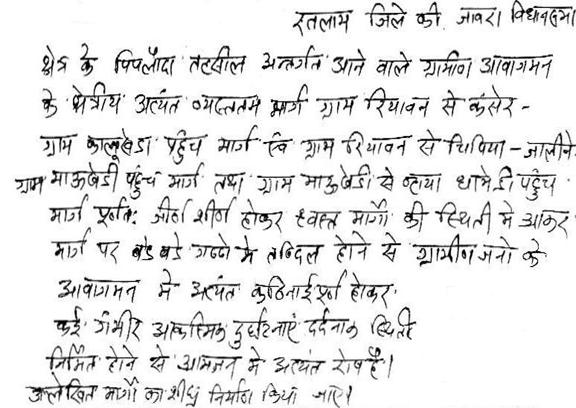 रतलाम जिले की जावरा विधानसभा
क्षेत्र के पिपलौदा तहसील अन्तर्गत आने वाले ग्रामीण आवागमन
के क्षेत्रीय अत्यंत व्यस्ततम मार्ग ग्राम रियावन से कंसेर -
ग्राम कालूखेडा पहुंच मार्ग एवं ग्राम रियावन से चिपिया - जालीने
ग्राम माऊखेडी पहुंच मार्ग तथा ग्राम माऊखेडी से व्हाया धामेडी पहुंच
मार्ग पूर्णत: जीर्ण शीर्ण होकर ध्वस्त मार्गो की स्थिती मे आकर
मार्ग पर बडे बडे गड्डो मे तब्दिल होने से ग्रामीण जनो के
आवागमन मे अत्यंत कठिनाई पूर्ण होकर
कई गंभीर आकस्मिक दुर्घटनाएं दर्दनाक स्थिती
निर्मित होने से आमजन मे अत्यंत रोष है।
उल्लेखित मार्गो का शीघ्र निर्माण किया जाए।